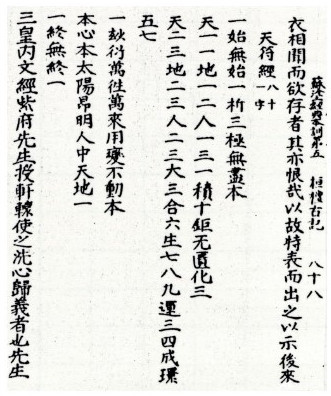 蘇塗經典本訓第五 桓檀古記 八十八
衣相聞而欲存者其亦恨哉以故特表而出之以示後來
天符經 八十一字
一始無始一析三極無盡本
天一一地一二人一三一積十鉅无匱化三
天二三地二三人二三大三合六生七八九運三四成環
五七
一玅衍萬往萬來用變不動本
本心本太陽昻明人中天地一
一終無終一
三皇內文經紫府先生授軒轅使之洗心歸義者也先生